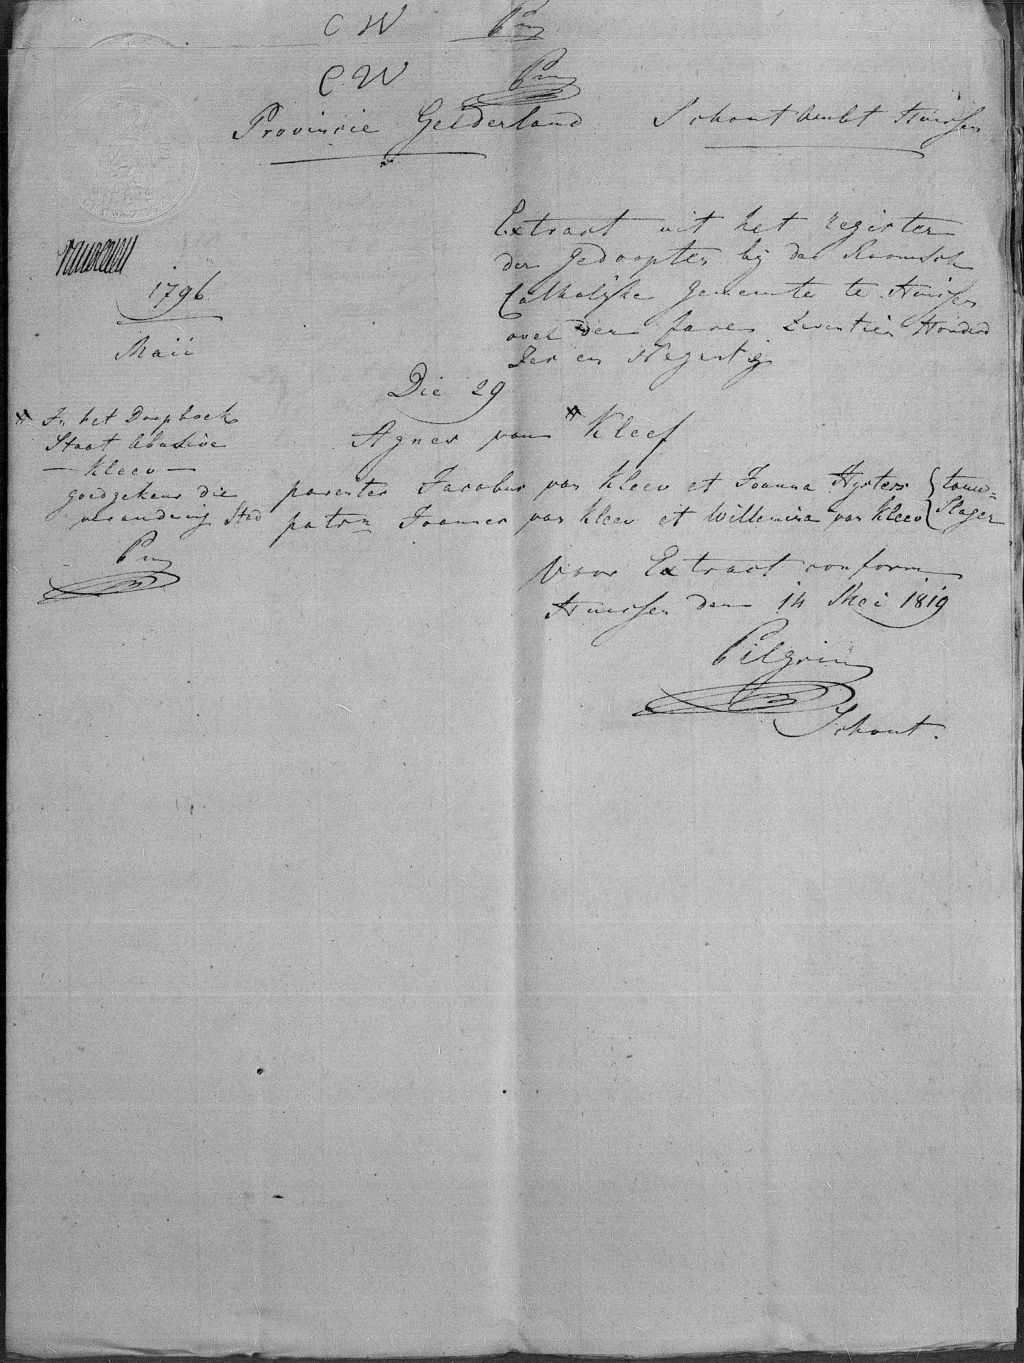 CW Pm
CW Pm
Provincie Gelderland Schout Ambt Huissen
Extract uit het register
der gedoopten bij de Roomsch
Catholijke gemeente te Huissen
over den Jare Zeventien Honderd
Zes en Negentig
1796
Maii
Die 29
Agnes van # Kleef
# In het Doopboek
Staat Abusive
— Kleev —
goedgekeurd die
verandering
Pm
parentes Jacobus van Kleev et Joanna { touw=
patrn Joannes van Kleev et Willemina van Kleev { Slager
Voor Extract conform
Huissen den 14 Mei 1819
Pilgrim
Schout.